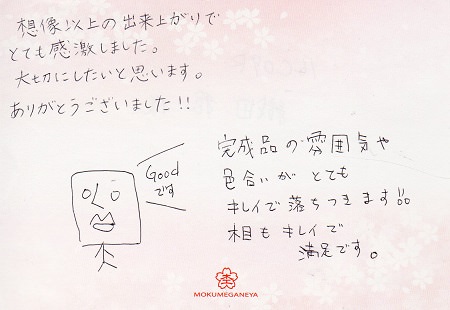 想像以上の出来上がりで
とても感激しました。
大切にしたいと思います。
ありがとうございました!!
Good
です
完成品の雰囲気や
色合いが とても
キレイで 落ちつきます!!
木目も キレイで
満足です。
MOKUMEGANEYA